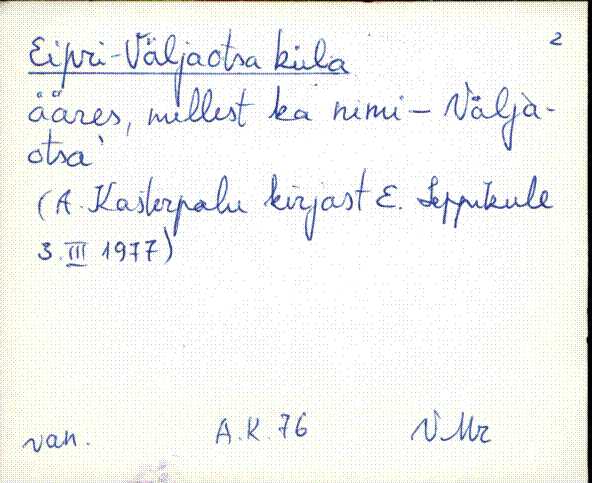 2
Eipri-Väljaotsa küla
ääres, millest ka nimi – Välja-
otsa'
(A. Kasterpalu kirjast E. Leppikule
3. III 1977)
van. A.K. 76 VMr